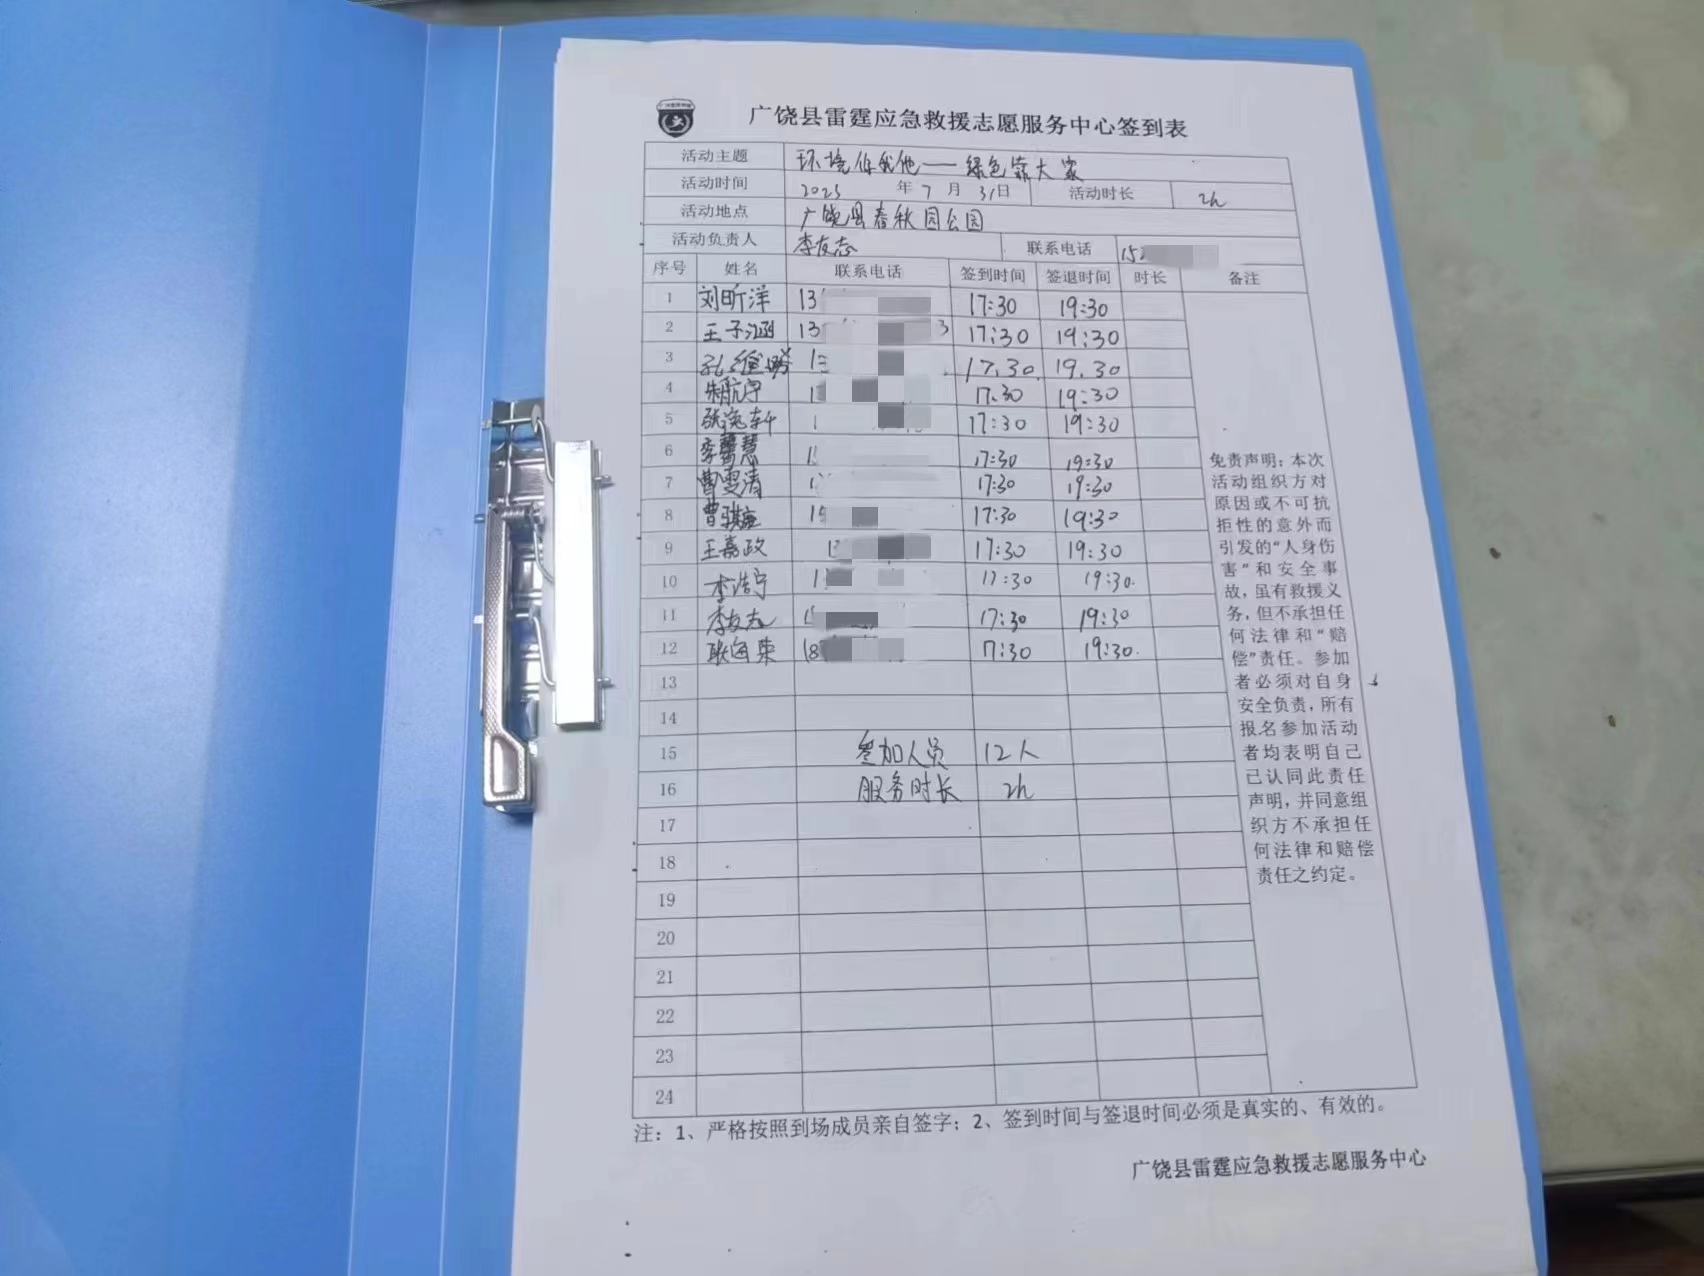 广饶县雷霆应急救援志愿服务中心签到表
活动主题 环境你我他——绿色靠大家
活动时间 2023 年 7 月 31日 活动时长 2h
活动地点 广饶县春秋园公园
活动负责人 李友志 联系电话 15
序号 姓名 联系电话 签到时间 签退时间 时长 备注
1 刘昕洋 13 17:30 19:30
2 王子涵 13 3 17:30 19:30
3 17.30 19.30
4 朱航宇 1 17.30 19:30
5 张逸轩 1 17:30 19:30
6 李馨慧 1 17:30 19:30
7 曹雯清 1 17:30 19:30
8 曹骐 15 17:30 19:30
9 王嘉政 1 17:30 19:30
10 李浩宁 1 17:30 19:30.
11 李友志 1 17:30 19:30
12 耿通荣 18 17:30 19:30.
13
14
15 参加人员 12人
16 服务时长 2h
17
18
19
20
21
22
23
24
免责声明：本次
活动组织方对
原因或不可抗
拒性的意外而
引发的“人身伤
害”和安全事
故，虽有救援义
务，但不承担任
何法律和“赔
偿”责任。参加
者必须对自身
安全负责，所有
报名参加活动
者均表明自己
已认同此责任
声明，并同意组
织方不承担任
何法律和赔偿
责任之约定。
注：1、严格按照到场成员亲自签字；2、签到时间与签退时间必须是真实的、有效的。
广饶县雷霆应急救援志愿服务中心